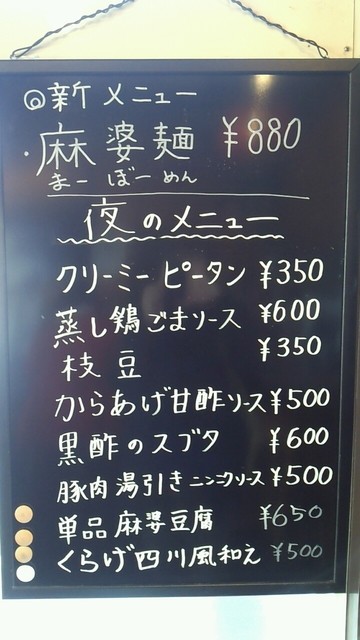 ◎新メニュー
・麻婆麺 ¥880
まーぼーめん
夜のメニュー
クリーミーピータン ¥350
蒸し鶏ごまソース ¥600
枝豆 ¥350
からあげ甘酢ソース ¥500
黒酢のスブタ ¥600
豚肉湯引きニンニクソース ¥500
単品麻婆豆腐 ¥650
くらげ四川風和え ¥500